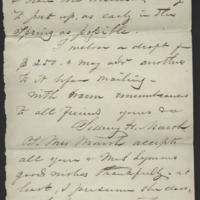 to put up, as early in the
Spring as possible.
I enclose a draft for
$250. & may add another
to it before mailing—
With warm remembrances
to all friends yours &c
Sidney H. Marsh
P.S. Mrs Marsh accepts
all your & Mrs Lyman's
good wishes thankfully, at
least, I presume she does,